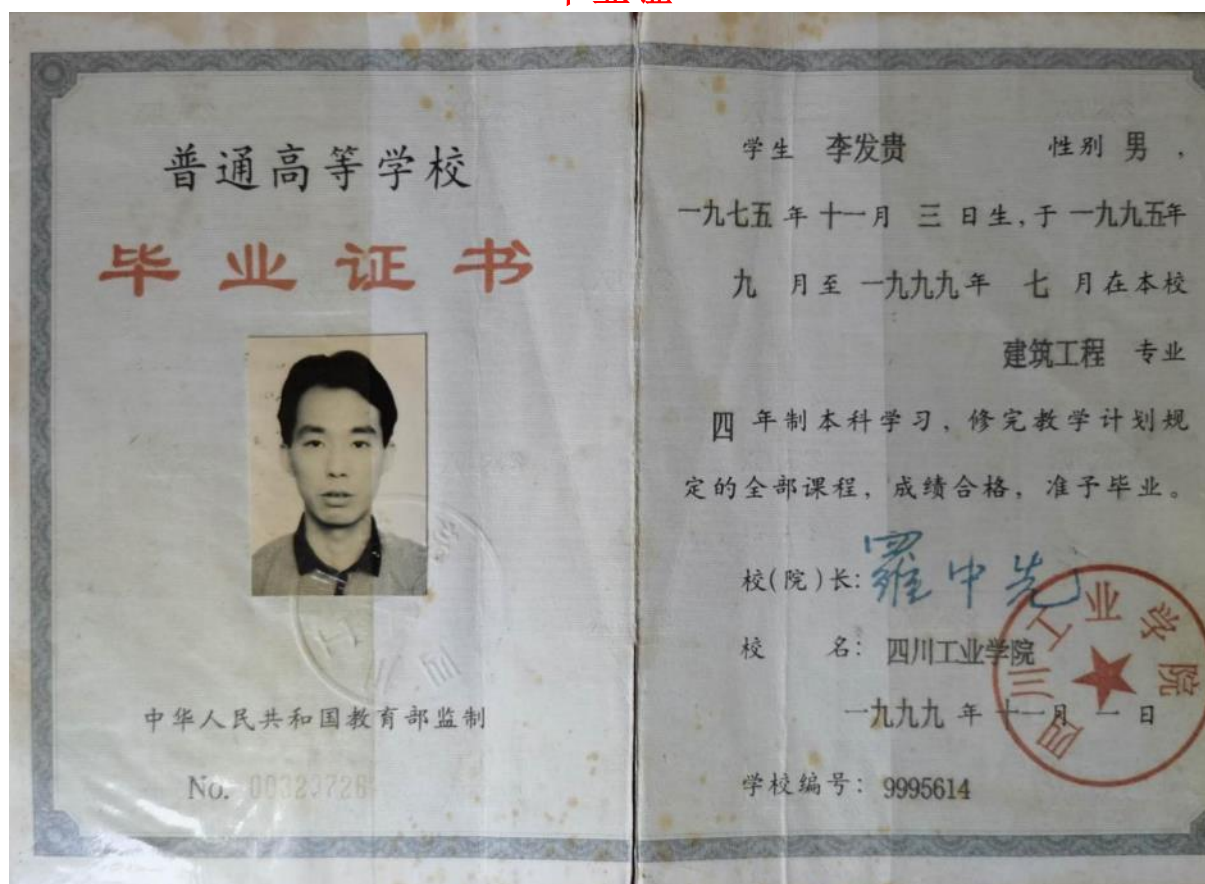 毕业证
普通高等学校
毕业证书
中华人民共和国教育部监制
No.
学生 李发贵 性别 男,
一九七五年十一月 三 日生,于一九九五年
九 月至一九九九年 七 月在本校
建筑工程 专业
四 年制本科学习,修完教学计划规
定的全部课程,成绩合格,准予毕业。
校(院)长:羅中先
校 名:四川工业学院
一九九九年十一月 一 日
学校编号:9995614
四川工业学院